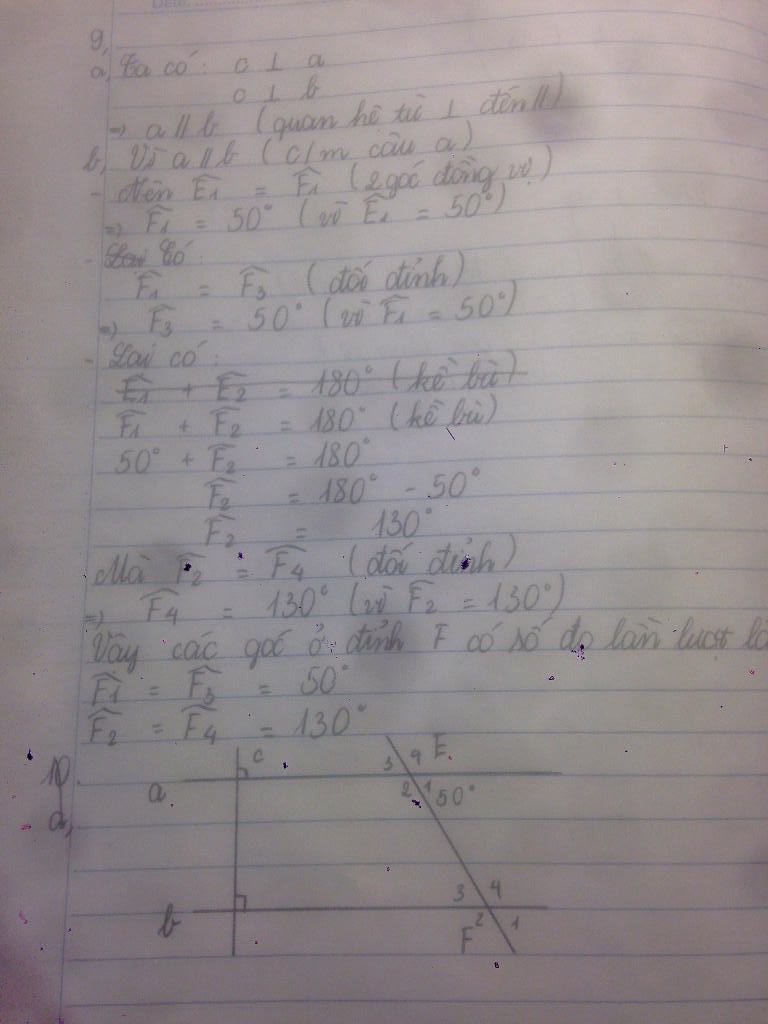 Date:
9,
a, Ta có: c ⊥ a
c ⊥ b
=> a // b (quan hệ từ ⊥ đến //)
b, Vì a // b (c/m câu a)
- Nên Ê1 = F̂1 (2 góc đồng vị)
=> F̂1 = 50° (vì Ê1 = 50°)
- Lại Có:
F̂1 = F̂3 (đối đỉnh)
=> F̂3 = 50° (vì F̂1 = 50°)
- Lại có:
Ê1 + Ê2 = 180° (kề bù)
F̂1 + F̂2 = 180° (kề bù)
50° + F̂2 = 180°
F̂2 = 180° - 50°
F̂2 = 130°
Mà F̂2 = F̂4 (đối đỉnh)
=> F̂4 = 130° (vì F̂2 = 130°)
Vậy các góc ở đỉnh F có số đo lần lượt là
F̂1 = F̂3 = 50°
F̂2 = F̂4 = 130°
10
a,
c
3 4 E
a
2 1 50°
3 4
b
F 2 1